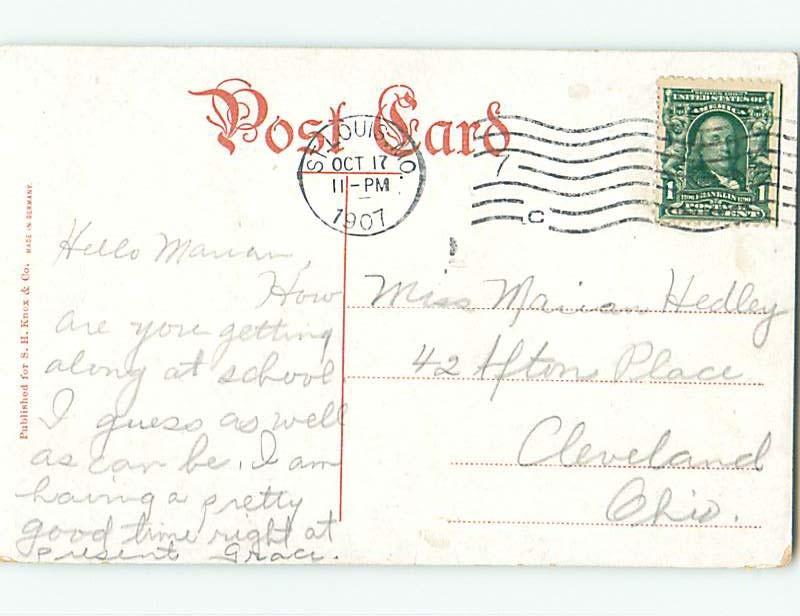 Post Card
ST. LOUIS, MO.
OCT 17
11-PM
1907
1
C
SERIES 1902
UNITED STATES OF
AMERICA
1 1
FRANKLIN
POSTAGE
ONE CENT
Published for S. H. Knox & Co. MADE IN GERMANY.
Hello Marian,
How
are you getting
along at school
I guess as well
as can be. I am
having a pretty
good time right at
present Grace.
Miss Marian Hedley
42 Afton Place
Cleveland
Ohio.